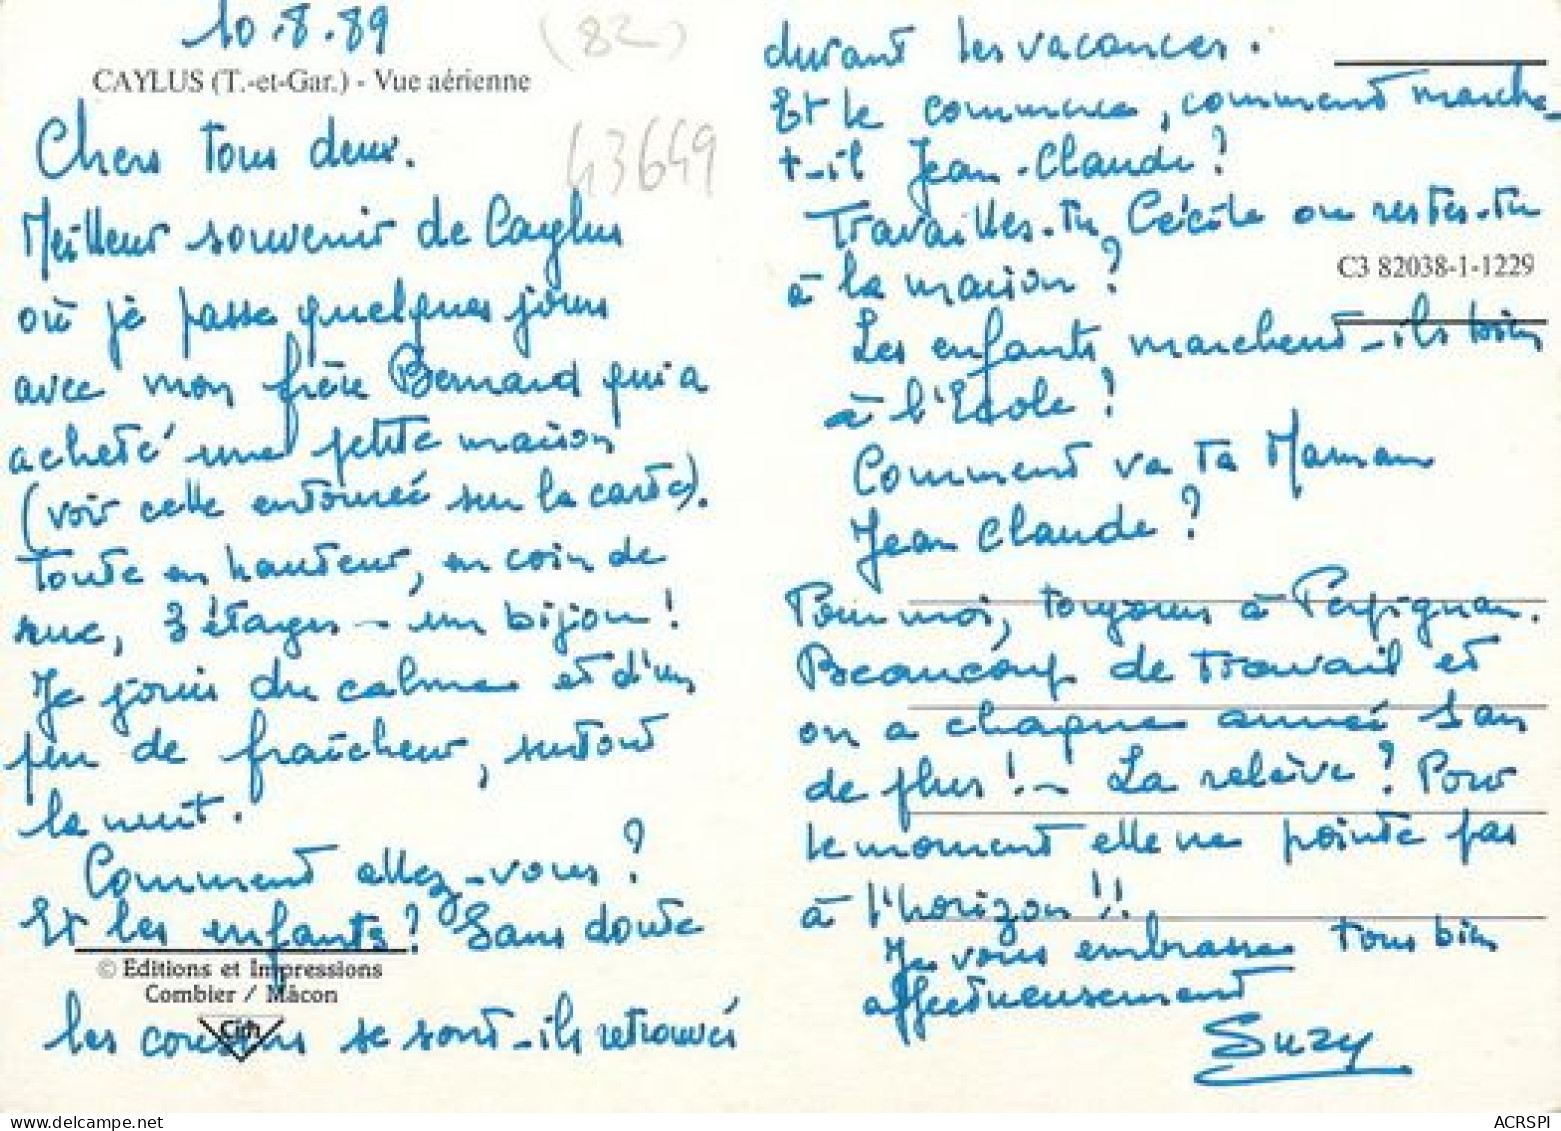 10.8.89
(82)
CAYLUS (T.-et-Gar.) - Vue aérienne
43649
Chers tous deux.
Meilleur souvenir de Caylus
où je passe quelques jours
avec mon frère Bernard qui a
acheté une petite maison
(voir celle entourée sur la carte).
Toute en hauteur, en coin de
rue, 3 étages - un bijou !
Je jouis du calme et d'un
peu de fraîcheur, surtout
la nuit.
Comment allez-vous ?
Et les enfants ? Sans doute
© Editions et Impressions
Combier / Mâcon
Cim
les cousins se sont-ils retrouvés
durant les vacances.
Et le commerce, comment marche-
t-il Jean-Claude ?
Travailles-tu, Cécile ou restes-tu
à la maison ?
C3 82038-1-1229
Les enfants marchent-ils bien
à l'Ecole ?
Comment va ta Maman
Jean Claude ?
Pour moi, toujours à Perpignan.
Beaucoup de travail et
on a chaque année 1 an
de plus ! - La relève ? Pour
le moment elle ne pointe pas
à l'horizon !!
Je vous embrasse tous bien
affectueusement
Suzy
ACRSPI